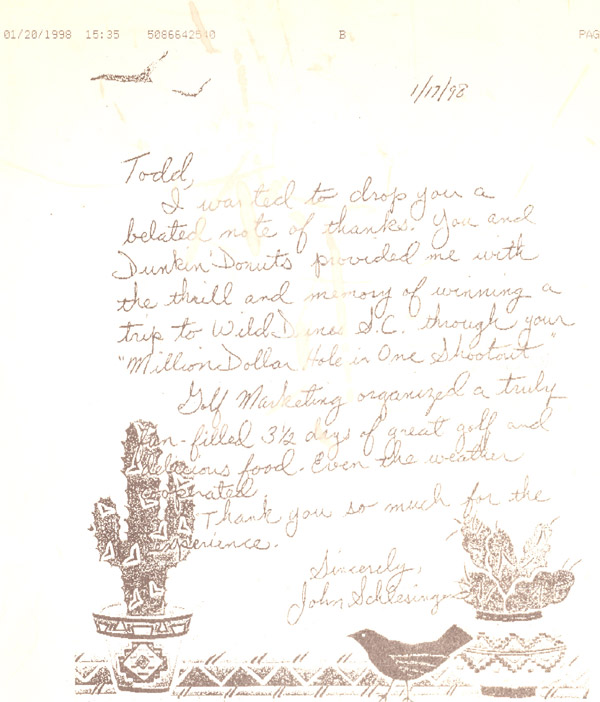 01/20/1998 15:35 5086642540 B PAG
1/17/98
Todd,
I wanted to drop you a
belated note of thanks. You and
Dunkin' Donuts provided me with
the thrill and memory of winning a
trip to Wild Dunes S.C. through your
"Million Dollar Hole in One Shootout"
Golf Marketing organized a truly
fun-filled 3½ days of great golf and
delicious food. Even the weather
cooperated.
Thank you so much for the
experience.
Sincerely,
John Schlesinger